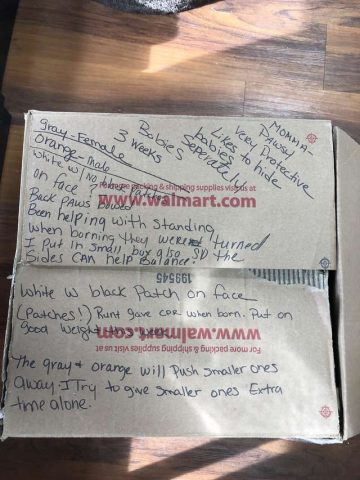 MOMMA-
PAWSY
Very Protective
Likes to hide
babies
seperately
Babies
3 weeks
Gray-Female
Orange-Male
White w/ No other Pattern
on face?
Back paws Bowed
Been helping with standing
When borning they were turned
I put in small box also so the
sides can help Balance.
For more packing & shipping supplies visit us at
www.walmart.com
199545
White w black Patch on face
(Patches!) Runt gave CPR when born. Put on
good weight this week
For more packing & shipping supplies visit us at
www.walmart.com
The gray & orange will push smaller ones
away. I Try to give smaller ones Extra
time alone.